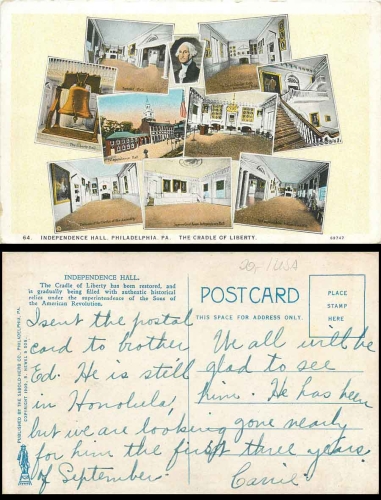 The Liberty Bell
Independence Hall
64. INDEPENDENCE HALL, PHILADELPHIA, PA. THE CRADLE OF LIBERTY.
INDEPENDENCE HALL.
The Cradle of Liberty has been restored, and
is gradually being filled with authentic historical
relics under the superintendence of the Sons of
the American Revolution.
POSTCARD
THIS SPACE FOR ADDRESS ONLY.
PLACE
STAMP
HERE
PUBLISHED BY THE SABOLD-HERB CO., PHILADELPHIA, PA.
I sent the postal
card to brother
Ed. He is still
in Honolulu,
but we are looking
for him the first
of September.
We all will be
glad to see
him. He has been
gone nearly
three years.
Carrie.